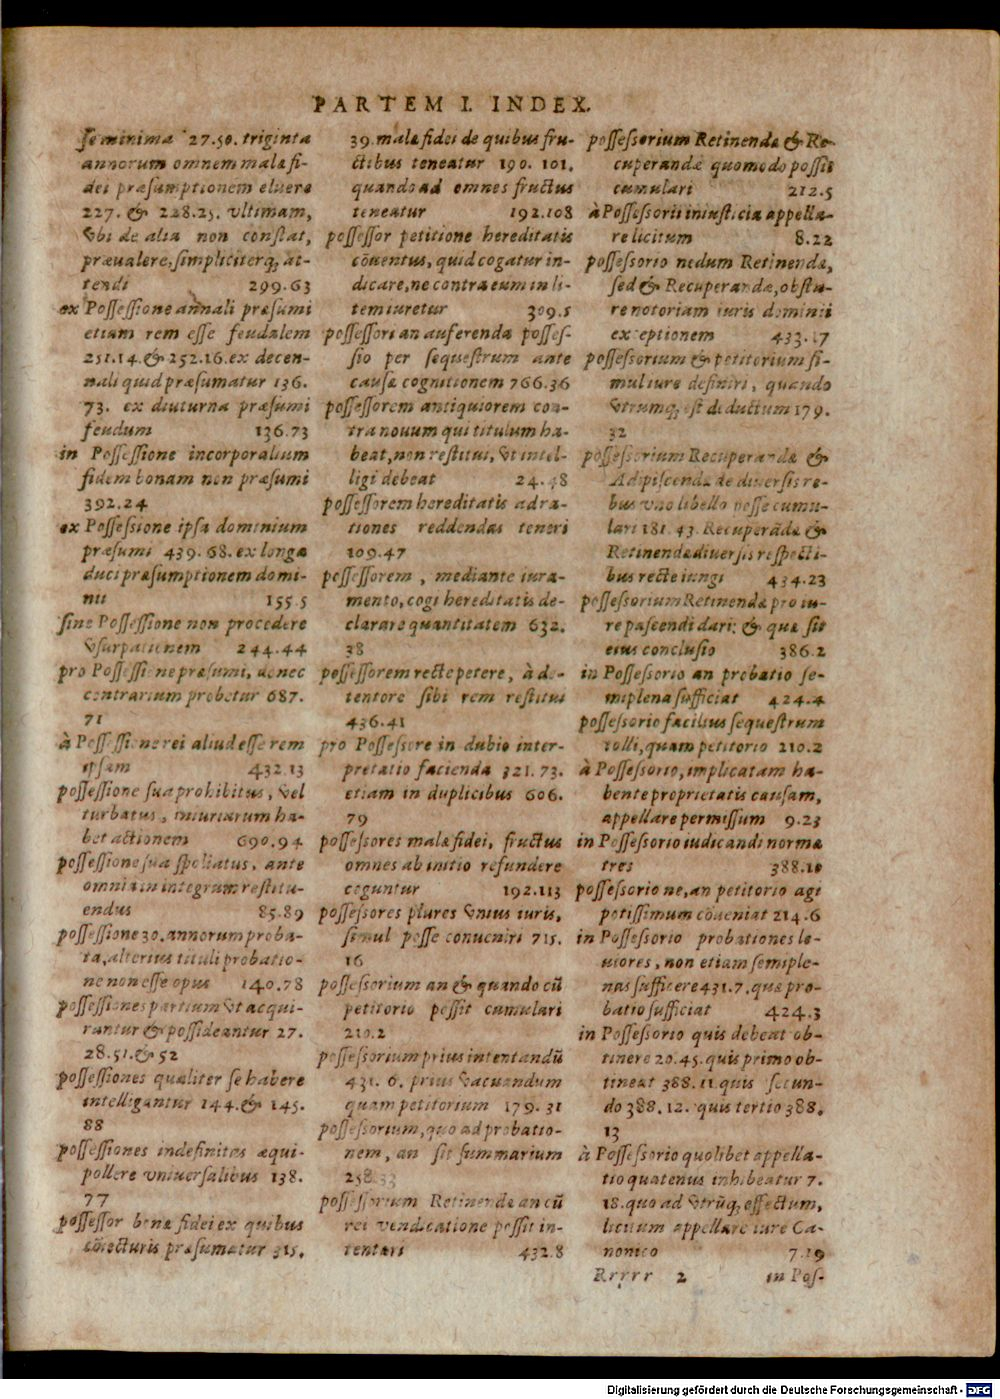 PARTEM I. INDEX.
ſe minima 27.50. triginta
annorum omnem malæ fi-
dei præſumptionem eluere
227. & 228.25. vltimam,
vbi de alia non conſtat,
præualere, ſimpliciterq́; at-
tendi 299.63
ex Poſſeſſione annali præſumi
etiam rem eſſe feudalem
251.14. & 252.16. ex decen-
nali quid præſumatur 136.
73. ex diuturna præſumi
feudum 136.73
in Poſſeſſione incorporalium
fidem bonam non præſumi
392.24
ex Poſſeſſione ipſa dominium
præſumi 439.68. ex longa
duci præſumptionem domi-
nii 155.5
ſine Poſſeſſione non procedere
vſurpationem 244.44
pro Poſſeſſione præſumi, donec
contrarium probetur 687.
71
à Poſſeſſione rei aliud eſſe rem
ipſam 432.13
poſſeſſione ſua prohibitus, vel
turbatus, iniuriarum ha-
bet actionem 690.94
poſſeſſione ſua ſpoliatus, ante
omnia in integrum reſtitu-
endus 85.89
poſſeſſione 30. annorum proba-
ta, alterius tituli probatio-
ne non eſſe opus 140.78
poſſeſſiones partium vt acqui-
rantur & poſſideantur 27.
28.51. & 52
poſſeſſiones qualiter ſe habere
intelligantur 144. & 145.
88
poſſeſſiones indefinitas æqui-
pollere vniuerſalibus 138.
77
poſſeſſor bonæ fidei ex quibus
cōiecturis præſumatur 315.
39. malæ fidei de quibus fru-
ctibus teneatur 190. 101.
quando ad omnes fructus
teneatur 192.108
poſſeſſor petitione hereditatis
cōuentus, quid cogatur in-
dicare, ne contra eum in li-
tem iuretur 309.5
poſſeſſori an auferenda poſſeſ-
ſio per ſequeſtrum ante
cauſæ cognitionem 766.36
poſſeſſorem antiquiorem con-
tra nouum qui titulum ha-
beat, non reſtitui, vt intel-
ligi debeat 24.48
poſſeſſorem hereditatis ad ra-
tiones reddendas teneri
109.47
poſſeſſorem, mediante iura-
mento, cogi hereditatis de-
clarare quantitatem 632.
38
poſſeſſorem recte petere, à de-
tentore ſibi rem reſtitui
436.41
pro Poſſeſſore in dubio inter-
pretatio facienda 321.73.
etiam in duplicibus 606.
79
poſſeſſores malæ fidei, fructus
omnes ab initio refundere
coguntur 192.113
poſſeſſores plures vnius iuris,
ſimul poſſe conueniri 715.
16
poſſeſſorium an & quando cū
petitorio poſſit cumulari
210.2
poſſeſſorium prius intentandū
431. 6. prius vacuandum
quam petitorium 179.31
poſſeſſorium, quo ad probatio-
nem, an ſit ſummarium
258.33
poſſeſſorium Retinendæ an cū
rei vendicatione poſſit in-
tentari 432.8
poſſeſſorium Retinendæ & Re-
cuperandæ quomodo poſſit
cumulari 212.5
à Poſſeſſorii iniuſticia appella-
re licitum 8.22
poſſeſſorio nedum Retinendæ,
ſed & Recuperandæ, obſta-
re notoriam iuris dominii
exceptionem 433.17
poſſeſſorium & petitorium ſi-
mul iure definiri, quando
vtrumq́; eſt deductum 179.
32
poſſeſſorium Recuperandæ &
Adipiſcendæ de diuerſis re-
bus vno libello poſſe cumu-
lari 181.43. Recuperādæ &
Retinendæ diuerſis reſpecti-
bus recte iungi 434.23
poſſeſſorium Retinendæ pro iu-
re paſcendi dari: & quæ ſit
eius concluſio 386.2
in Poſſeſſorio an probatio ſe-
miplena ſufficiat 424.4
poſſeſſorio facilius ſequeſtrum
tolli, quam petitorio 210.2
à Poſſeſſorio, implicatam ha-
bente proprietatis cauſam,
appellare permiſſum 9.23
in Poſſeſſorio iudicandi normæ
tres 388.10
poſſeſſorio ne, an petitorio agi
potiſſimum cōueniat 214.6
in Poſſeſſorio probationes le-
uiores, non etiam ſemiple-
nas ſufficere 431.7. quæ pro-
batio ſufficiat 424.3
in Poſſeſſorio quis debeat ob-
tinere 20.45. quis primo ob-
tineat 388.11. quis ſecun-
do 388.12. quis tertio 388.
13
à Poſſeſſorio quolibet appella-
tio quatenus inhibeatur 7.
18. quo ad vtrūq́; effectum,
licitum appellare iure Ca-
nonico 7.19
Rrrrr 2 in Poſ-
Digitalisierung gefördert durch die Deutsche Forschungsgemeinschaft - DFG